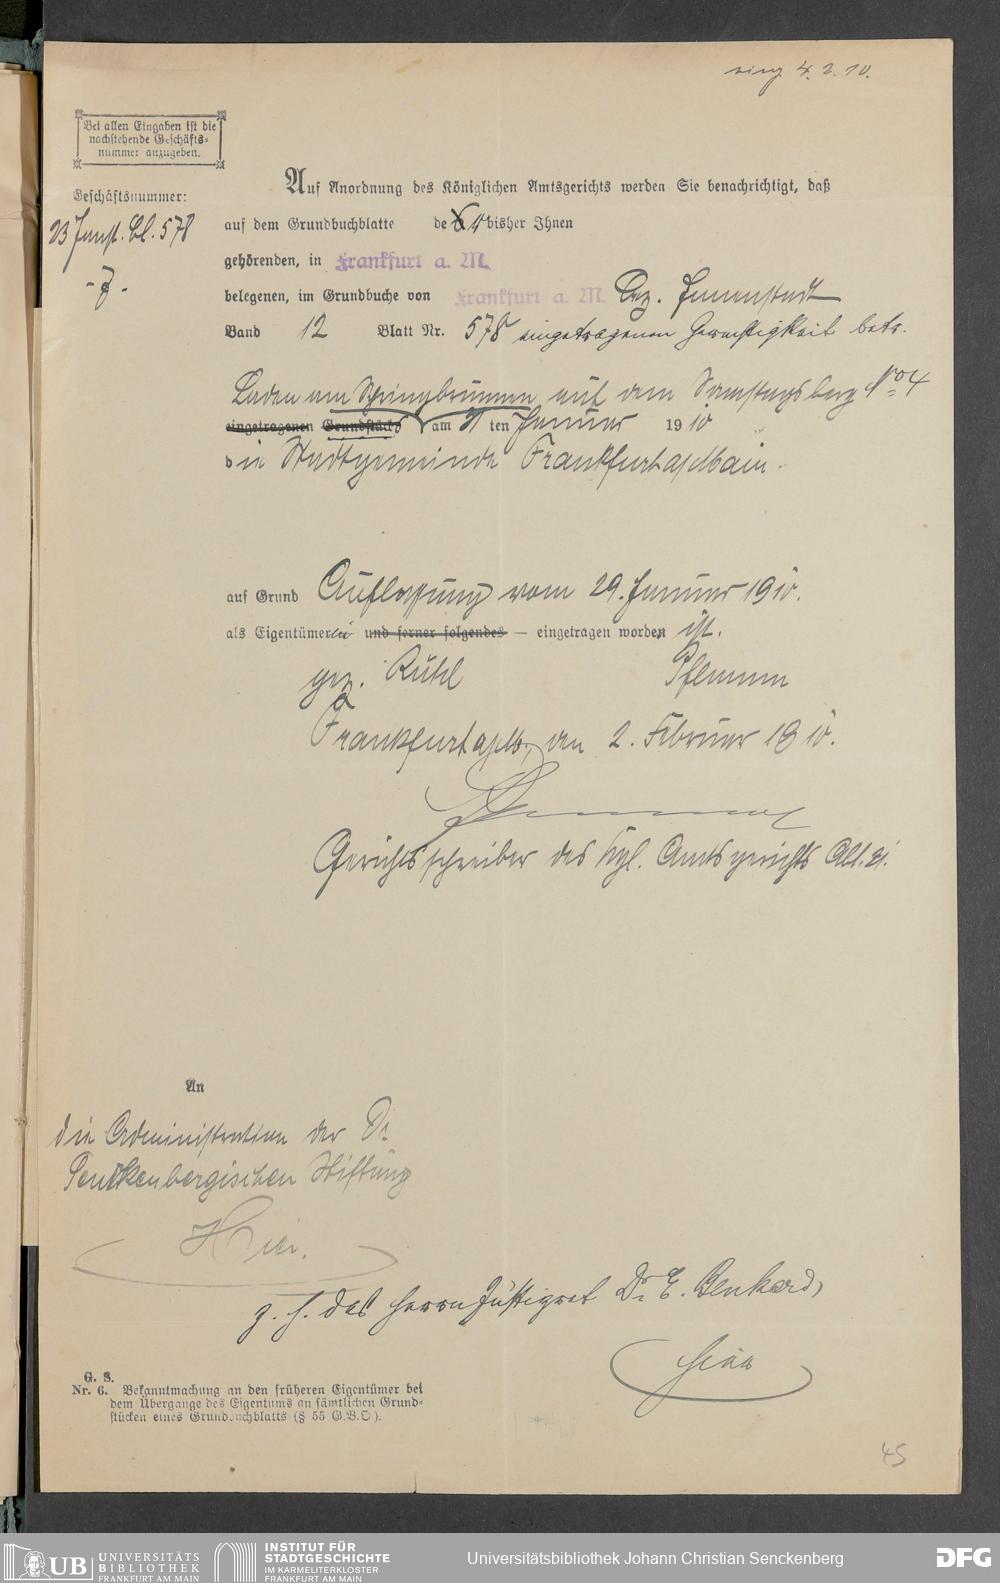 eing. 4. 2. 10.
Bei allen Eingaben ist die
nachstehende Geschäfts-
nummer anzugeben.
Geschäftsnummer:
23 Innst. Bl. 578
- 7 -
Auf Anordnung des Königlichen Amtsgerichts werden Sie benachrichtigt, daß
auf dem Grundbuchblatte der bisher Ihnen
gehörenden, in Frankfurt a. M.
belegenen, im Grundbuche von Frankfurt a. M. Bez. Innenstadt
Band 12 Blatt Nr. 578 eingetragenen Gerechtigkeit betr.
Laden am Springbrunnen auf dem Samstagsberg No 4
eingetragenen Grundstücks am 31 ten Januar 1910
die Stadtgemeinde Frankfurt a/Main.
auf Grund Auflassung vom 29. Januar 1910.
als Eigentümerin und ferner folgendes — eingetragen worden ist.
gez. Rühl Pflumm
Frankfurt a/M, den 2. Februar 1910.
Gerichtsschreiber des Kgl. Amtsgerichts Abt. 21.
An
die Administration der Dr
Senckenbergischen Stiftung
Hier.
z. H. des Herrn Justizrat Dr. E. Benkard,
hier
G. S.
Nr. 6. Bekanntmachung an den früheren Eigentümer bei
dem Übergange des Eigentums an sämtlichen Grund-
stücken eines Grundbuchblatts (§ 55 G.B.O.).
45
UB UNIVERSITÄTS
BIBLIOTHEK
FRANKFURT AM MAIN
INSTITUT FÜR
STADTGESCHICHTE
IM KARMELITERKLOSTER
FRANKFURT AM MAIN
Universitätsbibliothek Johann Christian Senckenberg
DFG